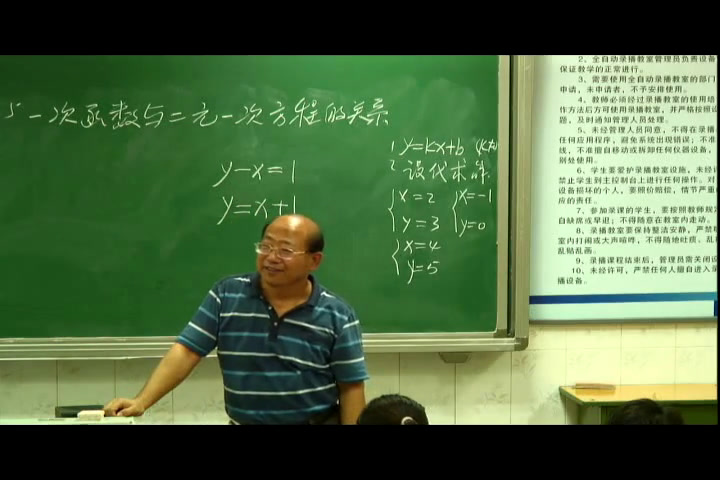 5 一次函数与二元一次方程的关系
y-x=1
y=x+1
1 y=kx+b (k≠
2 设代求作
{x=2 {x=-1
y=3 y=0
{x=4
y=5
2、全自动录播教室管理员负责设备
保证教学的正常进行。
3、需要使用全自动录播教室的部门
申请，未申请者，不予安排使用。
4、教师必须经过录播教室的使用培
作方法后方可使用录播教室，并严格按照设
题，及时通知管理人员处理。
5、未经管理人员同意，不得在录播
任何应用程序，避免系统出现错误；不准
线，不准擅自移动或拆卸任何仪器设备，
别处使用。
6、学生要爱护录播教室设施，未经许
禁止学生到主控制台上进行任何操作。对
设备损坏的个人，要照价赔偿，情节严重
应的责任。
7、参加录课的学生，要按照教师规定
自缺席或早退；不得随意在教室内走动。
8、录播教室要保持整洁安静，严禁
室内打闹或大声喧哗，不得随地吐痰、乱
乱贴乱画。
9、录播课程结束后，管理员需关闭设
10、未经许可，严禁任何人擅自进入录
播设备。